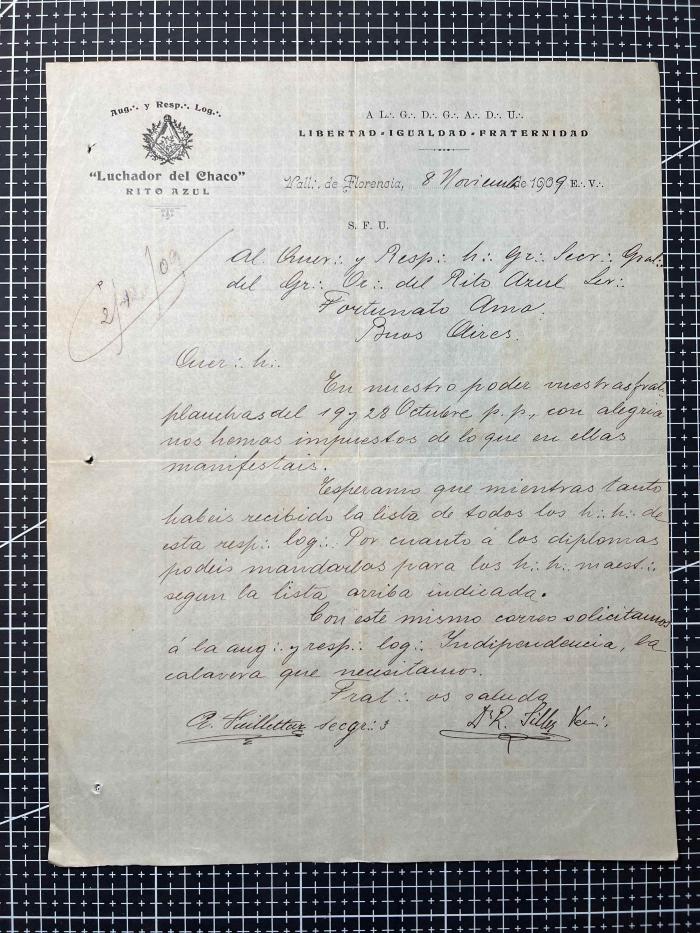 Aug∴ y Resp∴ Log∴
"Luchador del Chaco"
RITO AZUL
A L∴ G∴ D∴ G∴ A∴ D∴ U∴
LIBERTAD - IGUALDAD - FRATERNIDAD
Vall∴ de Florencia, 8 Noviembre de 1909 E∴ V∴
S. F. U.
Al Quer∴ y Resp∴ h∴ Gr∴ Secr∴ Gral∴
del Gr∴ Or∴ del Rito Azul Ser∴
Fortunato Amo.
Buos Aires.
Quer∴ h∴
En nuestro poder vuestras frat∴
planchas del 19 y 28 Octubre p. p., con alegria
nos hemos impuestos de lo que en ellas
manifestais.
Esperamo que mientras tanto
habeis recibido la lista de todos los h∴ h∴ de
esta resp∴ log∴ Por cuanto á los diplomas
podeis mandarlos para los h∴ h∴ maest∴
segun la lista arriba indicada.
Con este mismo correo solicitamos
á la aug∴ y resp∴ log∴ Indipendencia, la
calavera que necisitamos.
Frat∴ os saluda
secgr∴ 3
Dr R. Ven∴